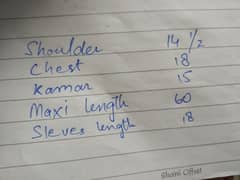 Shoulder 14 1/2
Chest 18
Kamar 15
Maxi length 60
Sleves length 18
Shani Offset